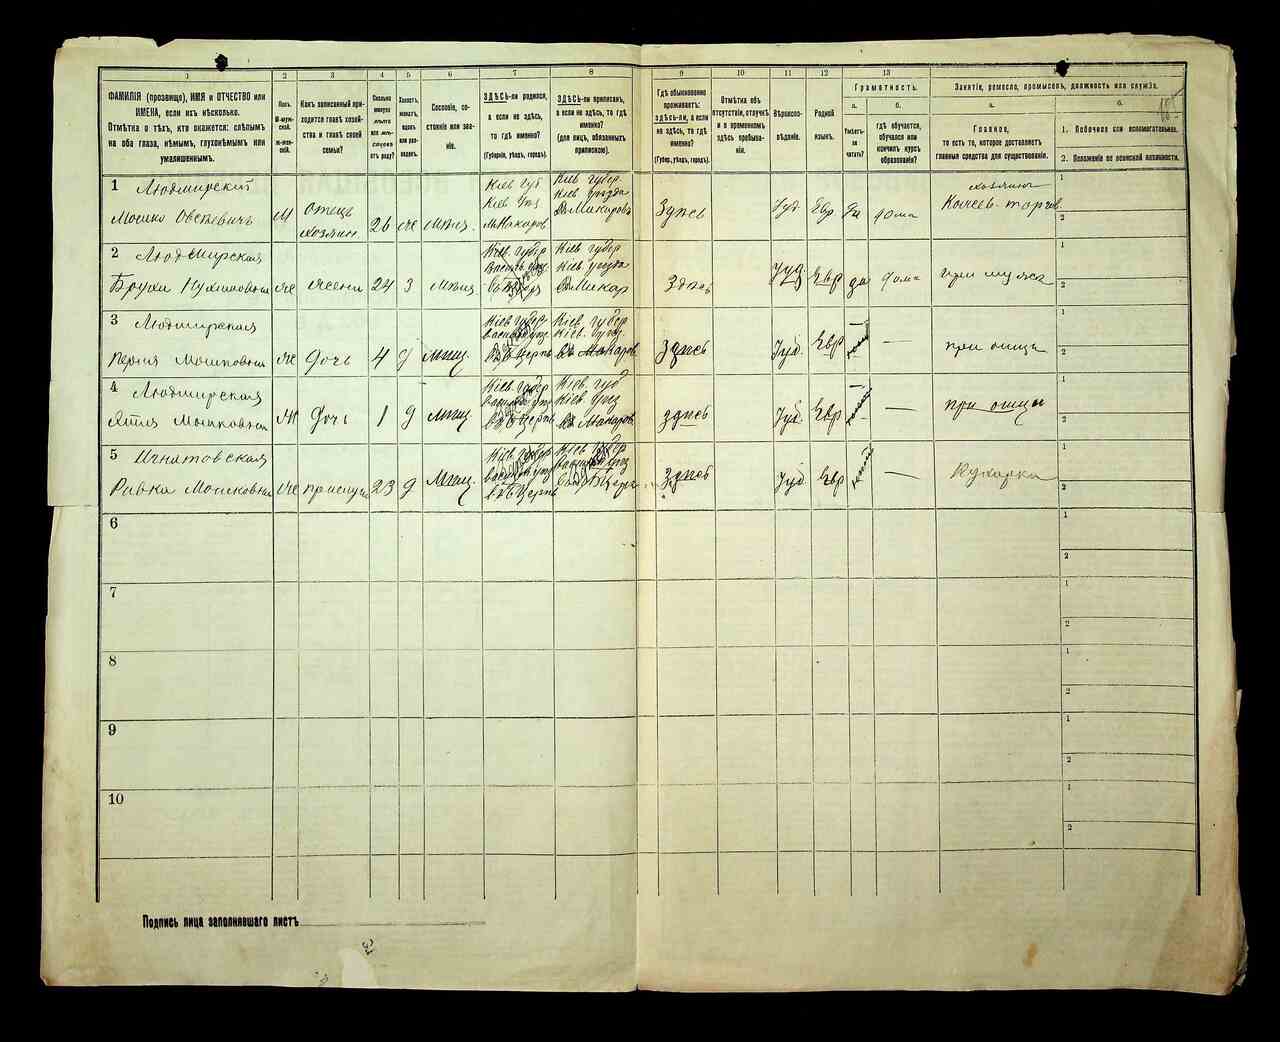 1 2 3 4 5 6 7 8 9 10 11 12 13
ФАМИЛІЯ (прозвище), ИМЯ и ОТЧЕСТВО или
ИМЕНА, если ихъ нѣсколько.
Отмѣтка о тѣхъ, кто окажется: слѣпымъ
на оба глаза, нѣмымъ, глухонѣмымъ или
умалишеннымъ.
Полъ.
М-муж-
ской.
Ж-жен-
скій.
Какъ записанный при-
ходится главѣ хозяй-
ства и главѣ своей
семьи?
Сколько
минуло
лѣтъ
или мѣ-
сяцевъ
отъ роду?
Холостъ,
женатъ,
вдовъ
или раз-
веденъ.
Сословіе, со-
стояніе или зва-
ніе.
ЗДѢСЬ-ли родился,
а если не здѣсь,
то гдѣ именно?
(Губернія, уѣздъ, городъ).
ЗДѢСЬ-ли приписанъ,
а если не здѣсь, то гдѣ
именно?
(для лицъ, обязанныхъ
припискою).
Гдѣ обыкновенно
проживаетъ:
здѣсь-ли, а если
не здѣсь, то гдѣ
именно?
(Губер., уѣздъ, городъ).
Отмѣтка объ
отсутствіи, отлучкѣ
и о временномъ
здѣсь пребыва-
ніи.
Вѣроиспо-
вѣданіе.
Родной
языкъ.
Грамотность.
а.
Умѣетъ-
ли
читать?
б.
гдѣ обучается,
обучался или
кончилъ курсъ
образованія?
Занятіе, ремесло, промыселъ, должность или служба.
а.
Главное,
то есть то, которое доставляетъ
главныя средства для существованія.
б.
1. Побочное или вспомогательное.
2. Положеніе по воинской повинности.
1 Людмирскій
Мошко Овсѣевичъ М Отецъ
хозяин. 26 же
Кіев Губ
Кіев Уѣз.
М. Макаров
Кіев Губер.
Кіев Уѣзда
М. Макаровъ
Здѣсь Іуд. Евр. Да дома
хозяинъ
торгов.
1
2
2 Людмирская
Же Жена 24 З Мѣщ
Кіев. Губер
Кіев. Губер
Кіев. уѣзда
М. Макар
Здѣсь Іуд. Евр да дома при мужѣ
1
2
3 Людмирская
Мошковна Же Дочь 4 Д Мѣщ.
Кіев Губер
Церкв
Кіев. Губер
Кіев. Уѣз.
М. Макаров.
Здѣсь Іуд. Евр — при отцѣ
1
2
4 Людмирская
Мошковна Ж Дочь 1 Д Мѣщ
Кіев. Губер
Церкв
Кіев. Губ
Кіев. Уѣз
М. Макаров.
здѣсь Іуд. Евр — при отцѣ
1
2
5 Игнатовская
Ривка Мошковна Же прислуга 23 Д Мѣщ.
Кіев. Губер
Церкв
Кіев. Губер
Здѣсь Іуд. Евр — Кухарка
1
2
6
1
2
7
1
2
8
1
2
9
1
2
10
1
2
Подпись лица заполнявшаго листъ